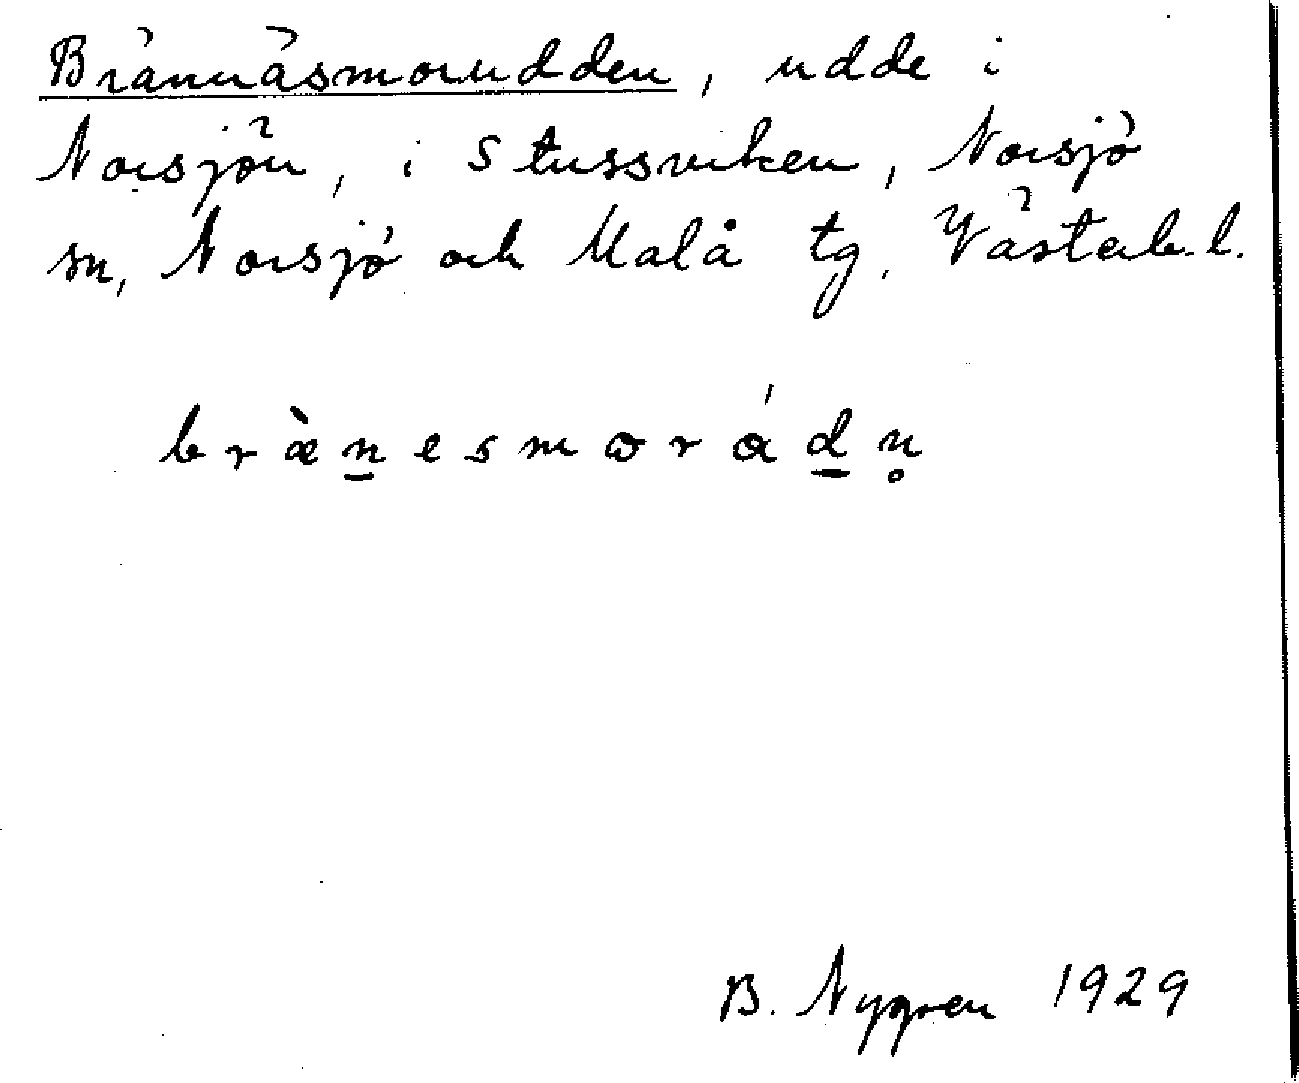 Brännäsmorudden, udde i
Norsjön, i Stussviken, Norsjö
sn, Norsjö och Malå tg, Västerb. l.
bræ̀n̠esmωrάd̠n̥
B. Nygren 1929